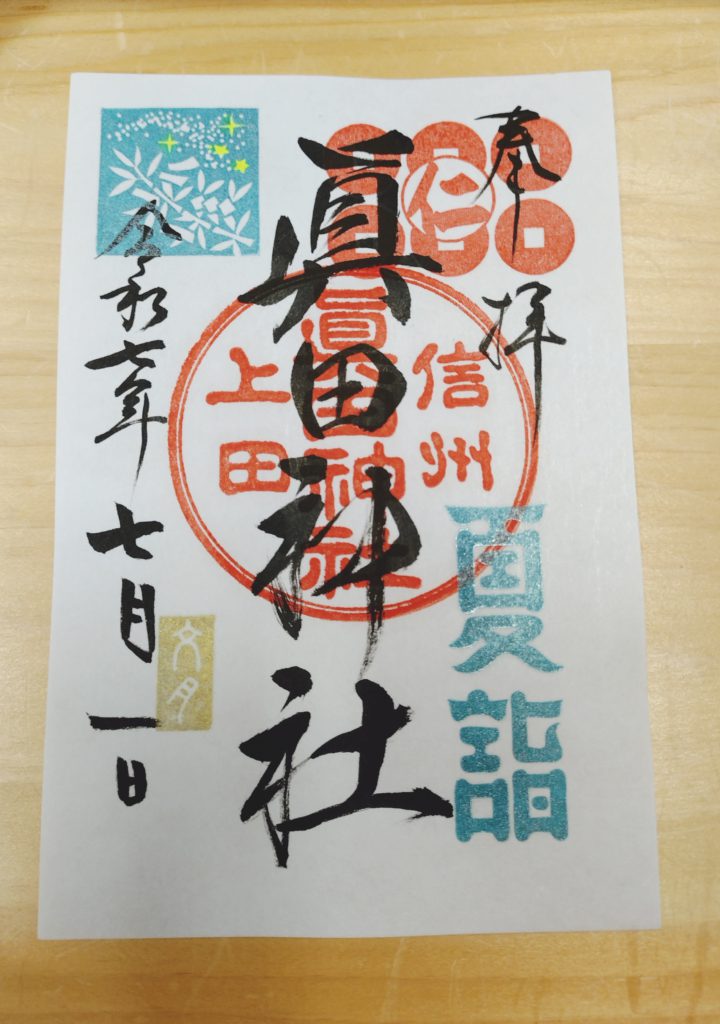 奉拝
仁
夏詣
眞田神社
信州
眞田神社
上田
令和七年七月一日
文月